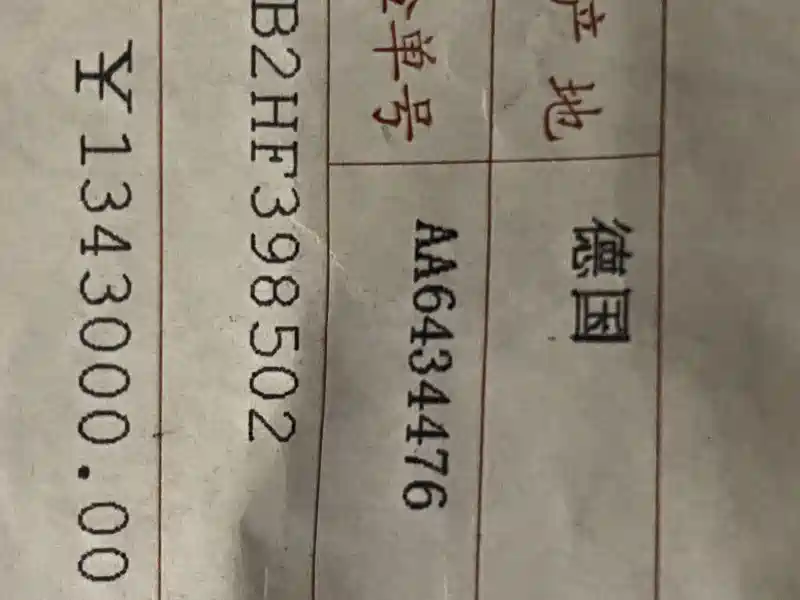 产地 德国
单号 AA6434476
B2HF398502
￥1343000.00